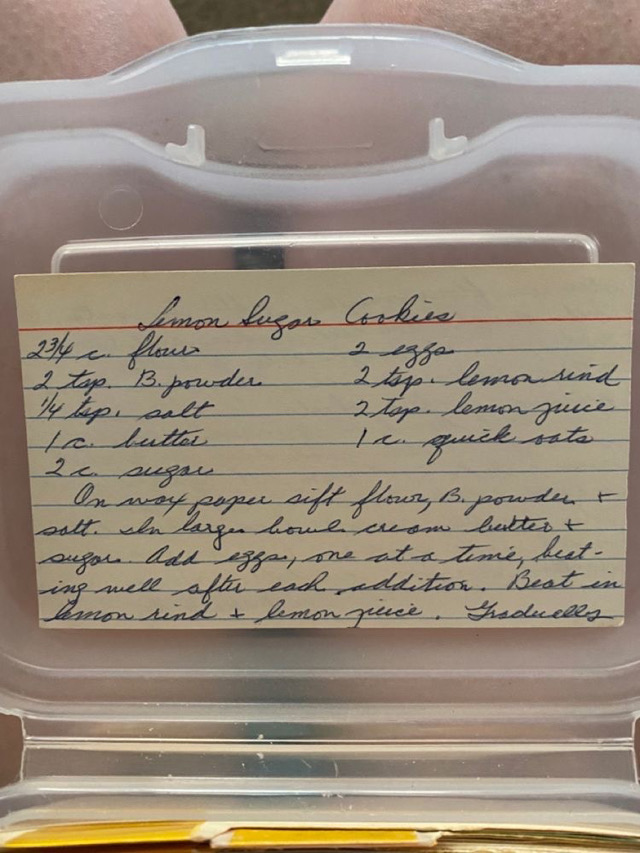 Lemon Sugar Cookies
2 3/4 c. flour 2 eggs
2 tsp. B. powder 2 tsp. lemon rind
1/4 tsp. salt 2 tsp. lemon juice
1 c. butter 1 c. quick oats
2 c. sugar
On wax paper sift flour, B. powder +
salt. In large bowl cream butter +
sugar. Add eggs, one at a time, beat-
ing well after each addition. Beat in
lemon rind + lemon juice. Gradually